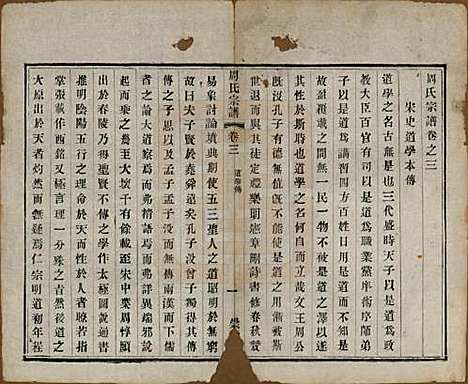 周氏宗譜卷之三
宋史道學本傳
道學之名古無是也三代盛時天子以是道為政
教大臣百官有司以是道為職業黨庠術序師弟
子以是道為講習四方百姓日用是道而不知是
故盈覆載之間無一民一物不被是道之澤以遂
其性於斯時也道學之名何自而立哉文王周公
既沒孔子有德無位既不能使是道之用漸被斯
世退而與其徒定禮樂明憲章刪詩書修春秋讚
周氏宗譜 卷三 道學傳 一
易象討論墳典期使五三聖人之道昭明於無窮
故曰夫子賢於堯舜遠矣孔子沒曾子獨得其傳
傳之子思以及孟子孟子沒而無傳兩漢而下儒
者之論大道察焉而弗精語焉而弗詳異端邪說
起而乘之幾至大壞千有餘載至宋中葉周惇頤
出於舂陵乃得聖賢不傳之學作太極圖說通書
推明陰陽五行之理命於天而性於人者瞭若指
掌張載作西銘又極言理一分殊之旨然後道之
大原出於天者灼然而無疑焉仁宗明道初年程